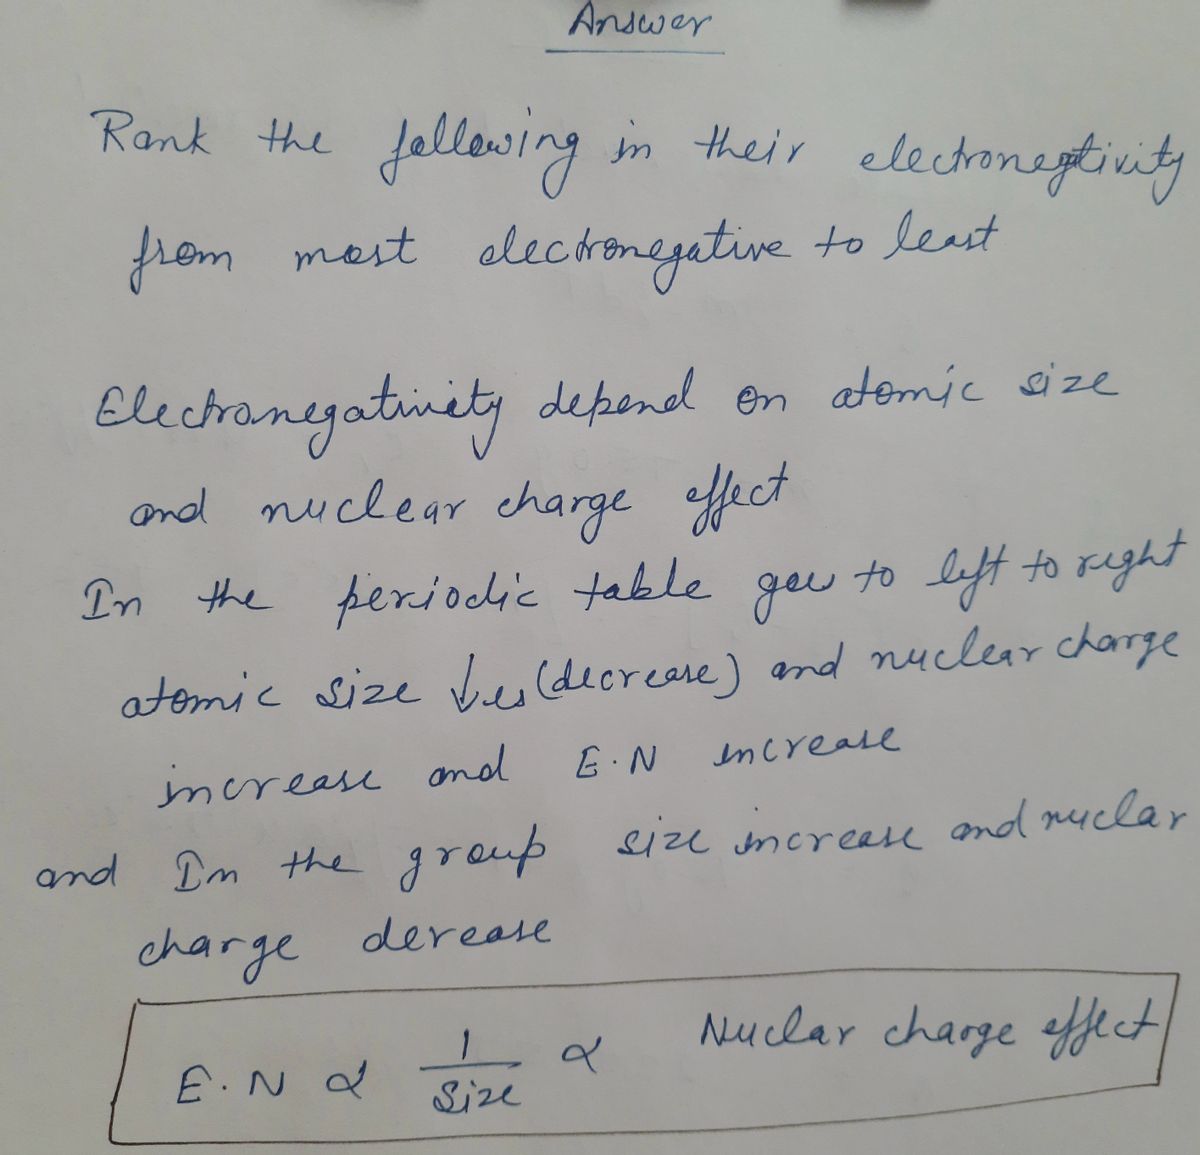 Answer
Rank the following in their electronegtivity
from most electronegative to least
Electronegativity depend on atomic size
and nuclear charge effect
In the periodic table to left to right
atomic size ↓es (decrease) and nuclear charge
increase and E.N increase
and In the group size increase and nuclar
charge derease
E.N ∝ 1/Size ∝ Nuclar charge effect